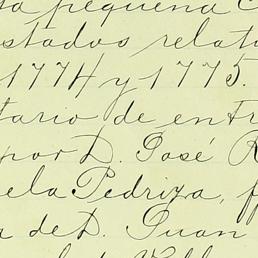 pequeña
stados relat
1774 y 1775.
tario de entr
por D. José R
ela Pedriza, f
a de D. Juan